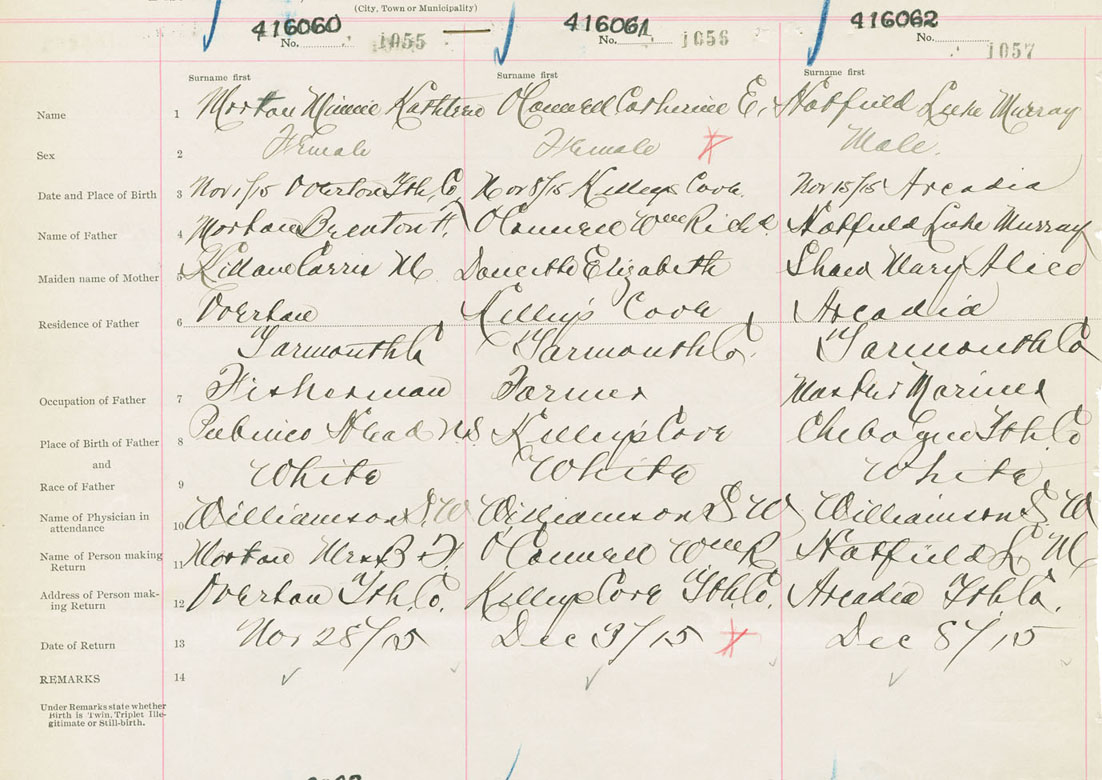 (City, Town or Municipality)
416060 416061 416062
No. 1055 No. 1056 No. 1057
Surname first Surname first Surname first
Name 1 Morton Minnie Kathleen O'Connell Catherine E. Hatfield Luke Murray
Sex 2 Female Female Male.
Date and Place of Birth 3 Nov 1/15 Overton Yth. Co. Nov 8/15 Kelleys Cove. Nov 15/15 Arcadia
Name of Father 4 Morton Brenton F. O'Connell Wm Richd Hatfield Luke Murray
Maiden name of Mother 5 Carrie M Elizabeth Shaw Mary Alice
Residence of Father 6 Overton Kelley's Cove Arcadia
Yarmouth Co Yarmouth Co. Yarmouth Co
Occupation of Father 7 Fisherman Farmer Master Mariner
Place of Birth of Father 8 Pubnico Head N.S Kelley's Cove Chebogue Yth Co
and
Race of Father 9 White White White
Name of Physician in
attendance 10 Williamson S. W Williamson S W Williamson S. W
Name of Person making
Return 11 Morton Mrs B. F. O'Connell Wm R Hatfield L M
Address of Person mak-
ing Return 12 Overton Yth. Co. Kelleys Cove Yth. Co. Arcadia Yth Co.
Date of Return 13 Nov 28/15 Dec 3/15 Dec 8/15
REMARKS 14
Under Remarks state whether
Birth is Twin, Triplet Ille-
gitimate or Still-birth.